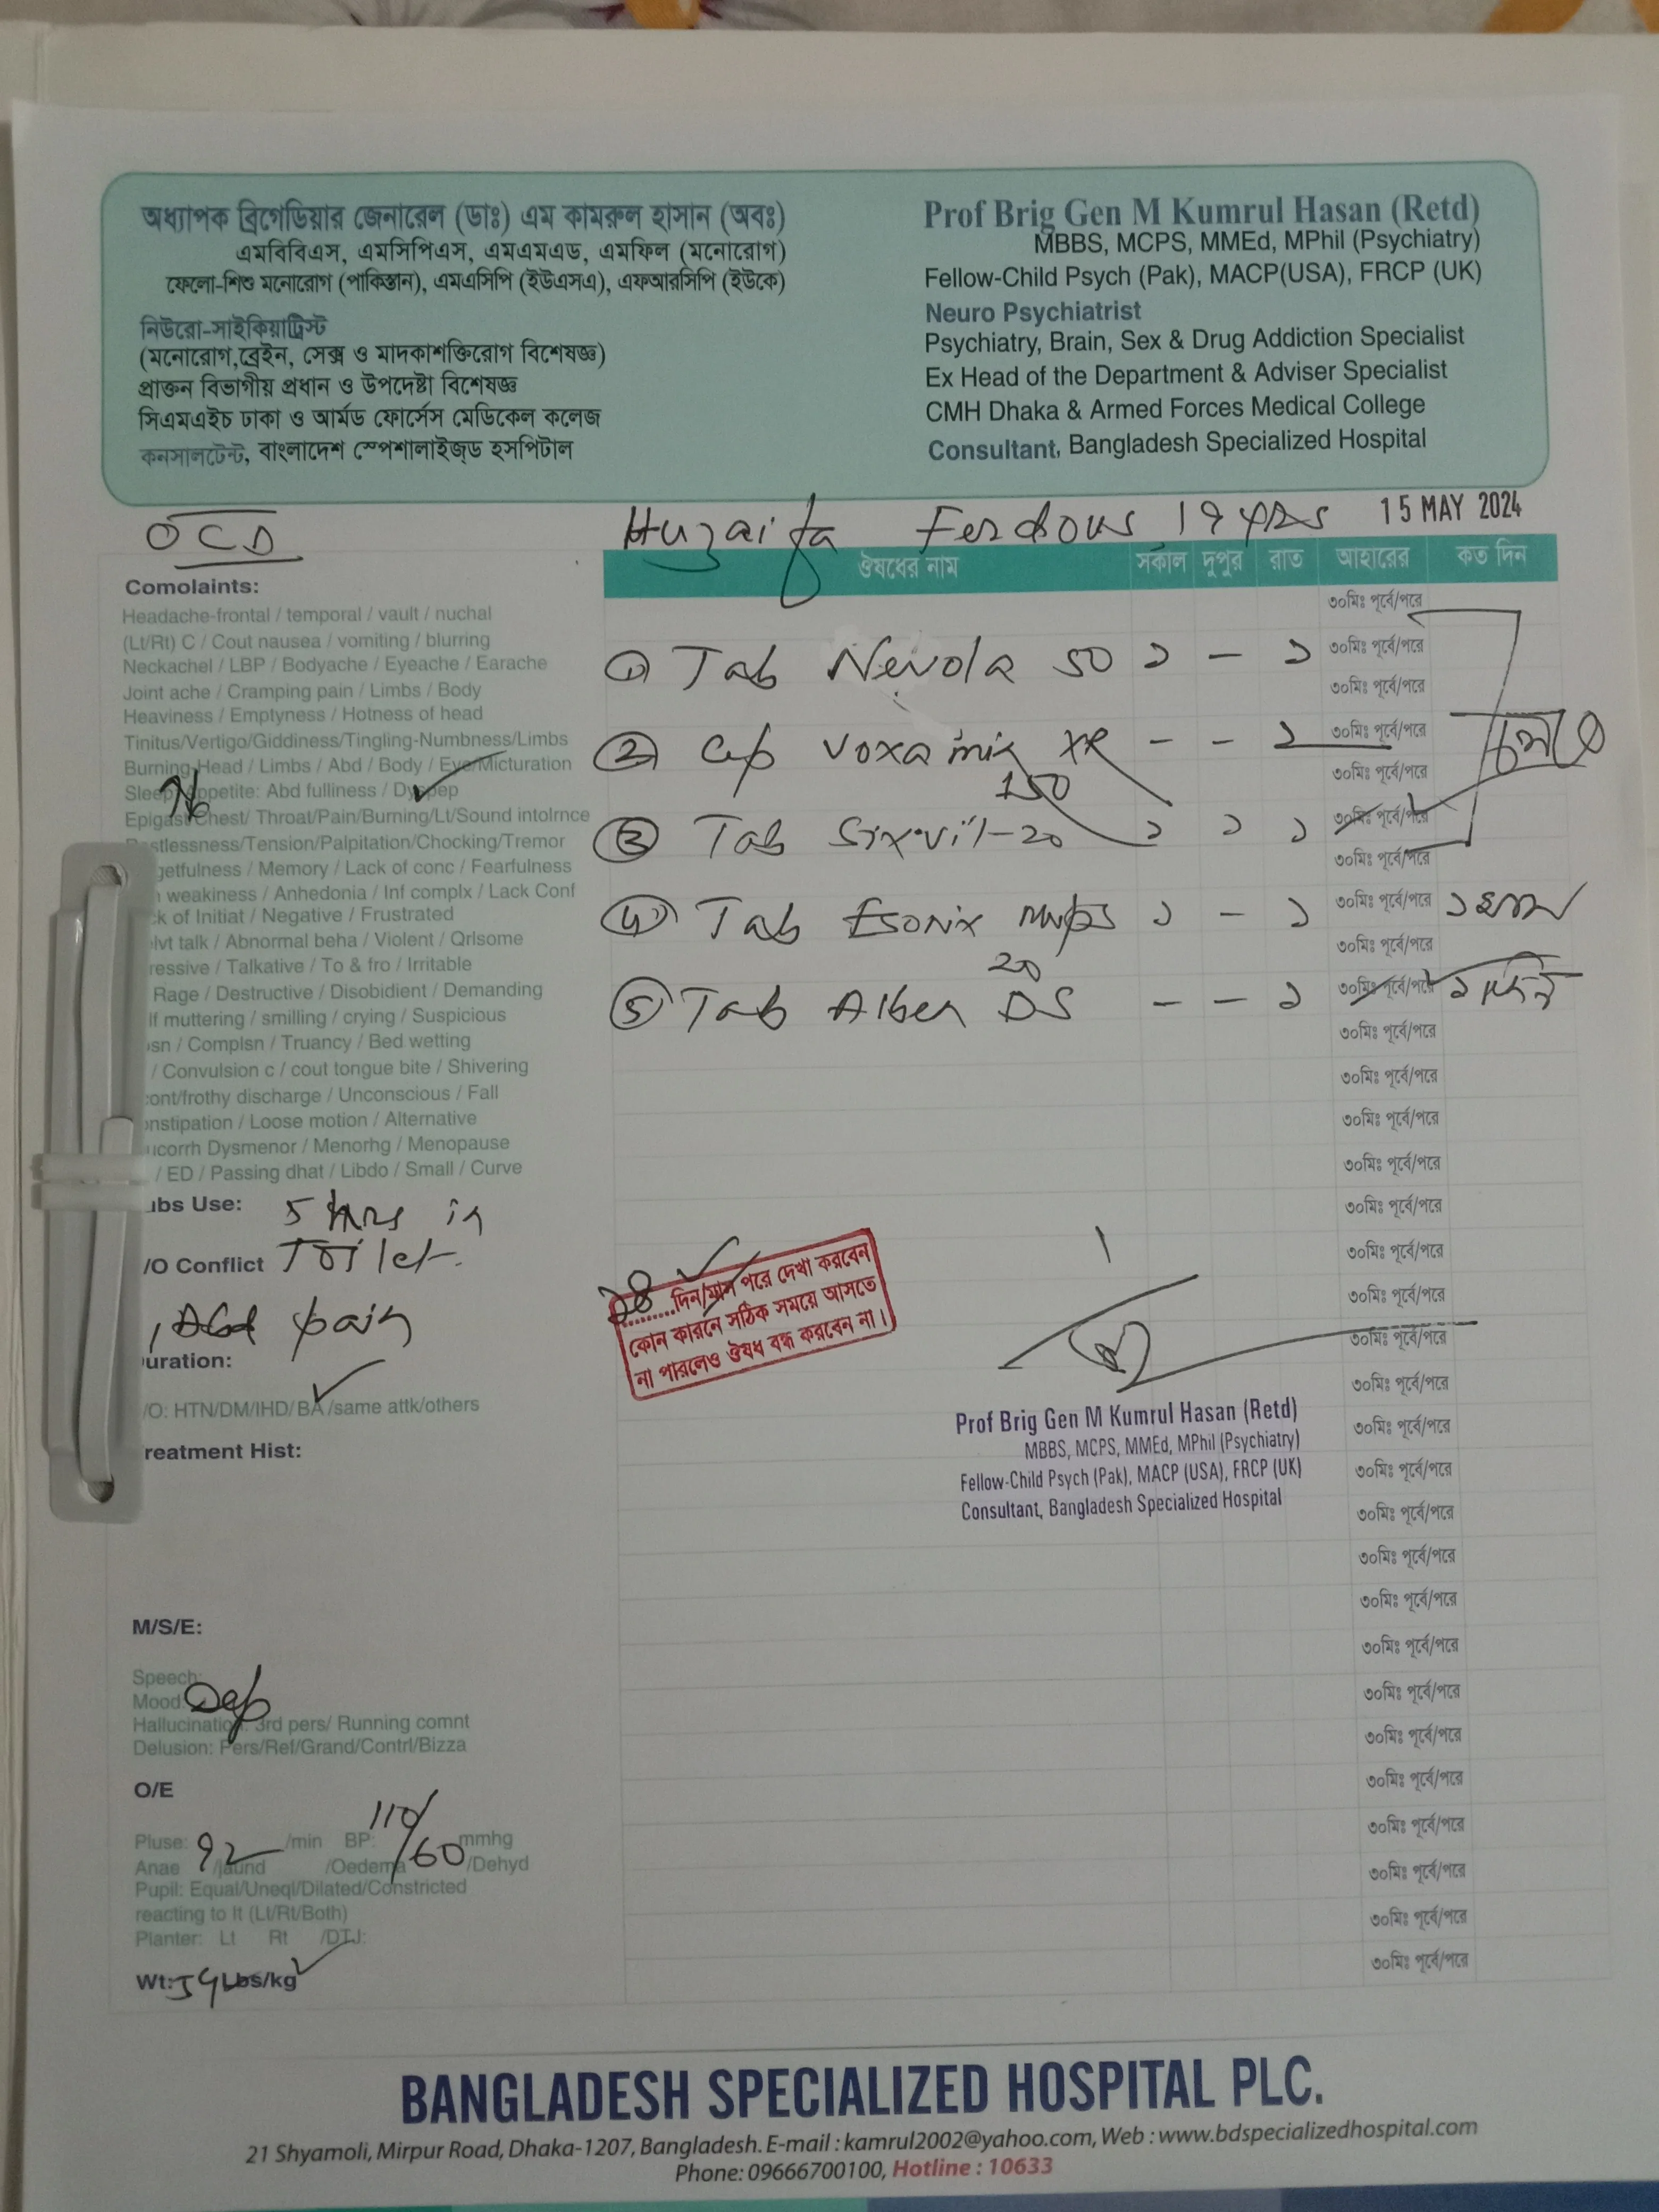 অধ্যাপক ব্রিগেডিয়ার জেনারেল (ডাঃ) এম কামরুল হাসান (অবঃ)
এমবিবিএস, এমসিপিএস, এমএমএড, এমফিল (মনোরোগ)
ফেলো-শিশু মনোরোগ (পাকিস্তান), এমএসিপি (ইউএসএ), এফআরসিপি (ইউকে)
নিউরো-সাইকিয়াট্রিস্ট
(মনোরোগ,ব্রেইন, সেক্স ও মাদকাশক্তিরোগ বিশেষজ্ঞ)
প্রাক্তন বিভাগীয় প্রধান ও উপদেষ্টা বিশেষজ্ঞ
সিএমএইচ ঢাকা ও আর্মড ফোর্সেস মেডিকেল কলেজ
কনসালটেন্ট, বাংলাদেশ স্পেশালাইজ্ড হসপিটাল
Prof Brig Gen M Kumrul Hasan (Retd)
MBBS, MCPS, MMEd, MPhil (Psychiatry)
Fellow-Child Psych (Pak), MACP(USA), FRCP (UK)
Neuro Psychiatrist
Psychiatry, Brain, Sex & Drug Addiction Specialist
Ex Head of the Department & Adviser Specialist
CMH Dhaka & Armed Forces Medical College
Consultant, Bangladesh Specialized Hospital
OCD
Huzaifa Ferdous 19 yrs 15 MAY 2024
Comolaints:
Headache-frontal / temporal / vault / nuchal
(Lt/Rt) C / Cout nausea / vomiting / blurring
Neckachel / LBP / Bodyache / Eyeache / Earache
Joint ache / Cramping pain / Limbs / Body
Heaviness / Emptyness / Hotness of head
Tinitus/Vertigo/Giddiness/Tingling-Numbness/Limbs
Burning-Head / Limbs / Abd / Body / Eye/Micturation
Sleep/Appetite: Abd fulliness / Dyspep
Epigast/Chest/ Throat/Pain/Burning/Lt/Sound intolrnce
stlessness/Tension/Palpitation/Chocking/Tremor
getfulness / Memory / Lack of conc / Fearfulness
weakiness / Anhedonia / Inf complx / Lack Conf
ck of Initiat / Negative / Frustrated
lvt talk / Abnormal beha / Violent / Qrlsome
ressive / Talkative / To & fro / Irritable
Rage / Destructive / Disobidient / Demanding
lf muttering / smilling / crying / Suspicious
sn / Complsn / Truancy / Bed wetting
/ Convulsion c / cout tongue bite / Shivering
cont/frothy discharge / Unconscious / Fall
onstipation / Loose motion / Alternative
ucorrh Dysmenor / Menorhg / Menopause
/ ED / Passing dhat / Libdo / Small / Curve
ubs Use: 5 hrs in
/O Conflict Toilet
Abd pain
uration:
/O: HTN/DM/IHD/BA/same attk/others
reatment Hist:
M/S/E:
Speech:
Mood Dep
Hallucination: 3rd pers/ Running comnt
Delusion: Pers/Ref/Grand/Contrl/Bizza
O/E
Pluse: 92 /min BP: 110/60 mmhg
Anae /jaund /Oedema /Dehyd
Pupil: Equal/Uneql/Dilated/Constricted
reacting to lt (Lt/Rt/Both)
Planter: Lt Rt /DTJ:
Wt: 59 Lbs/kg
ঔষধের নাম সকাল দুপুর রাত আহারের কত দিন
৩০মিঃ পূর্বে/পরে
① Tab Nevola 50 ১ – ১ ৩০মিঃ পূর্বে/পরে
৩০মিঃ পূর্বে/পরে
② Cap Voxamin XR – – ১ ৩০মিঃ পূর্বে/পরে চলবে
150 ৩০মিঃ পূর্বে/পরে
③ Tab Sixvil-20 ১ ১ ১ ৩০মিঃ পূর্বে/পরে
৩০মিঃ পূর্বে/পরে
④ Tab Esonix mups ১ – ১ ৩০মিঃ পূর্বে/পরে ১ মাস
20 ৩০মিঃ পূর্বে/পরে
⑤ Tab Alben DS – – ১ ৩০মিঃ পূর্বে/পরে ১ দিন
৩০মিঃ পূর্বে/পরে
৩০মিঃ পূর্বে/পরে
৩০মিঃ পূর্বে/পরে
৩০মিঃ পূর্বে/পরে
৩০মিঃ পূর্বে/পরে
৩০মিঃ পূর্বে/পরে
৩০মিঃ পূর্বে/পরে
৩০মিঃ পূর্বে/পরে
৩০মিঃ পূর্বে/পরে
৩০মিঃ পূর্বে/পরে
৩০মিঃ পূর্বে/পরে
৩০মিঃ পূর্বে/পরে
৩০মিঃ পূর্বে/পরে
৩০মিঃ পূর্বে/পরে
৩০মিঃ পূর্বে/পরে
৩০মিঃ পূর্বে/পরে
৩০মিঃ পূর্বে/পরে
৩০মিঃ পূর্বে/পরে
৩০মিঃ পূর্বে/পরে
৩০মিঃ পূর্বে/পরে
৩০মিঃ পূর্বে/পরে
৩০মিঃ পূর্বে/পরে
২৪ ........দিন/মাস পরে দেখা করবেন
কোন কারনে সঠিক সময়ে আসতে
না পারলেও ঔষধ বন্ধ করবেন না।
Prof Brig Gen M Kumrul Hasan (Retd)
MBBS, MCPS, MMEd, MPhil (Psychiatry)
Fellow-Child Psych (Pak), MACP (USA), FRCP (UK)
Consultant, Bangladesh Specialized Hospital
BANGLADESH SPECIALIZED HOSPITAL PLC.
21 Shyamoli, Mirpur Road, Dhaka-1207, Bangladesh. E-mail : kamrul2002@yahoo.com, Web : www.bdspecializedhospital.com
Phone: 09666700100, Hotline : 10633